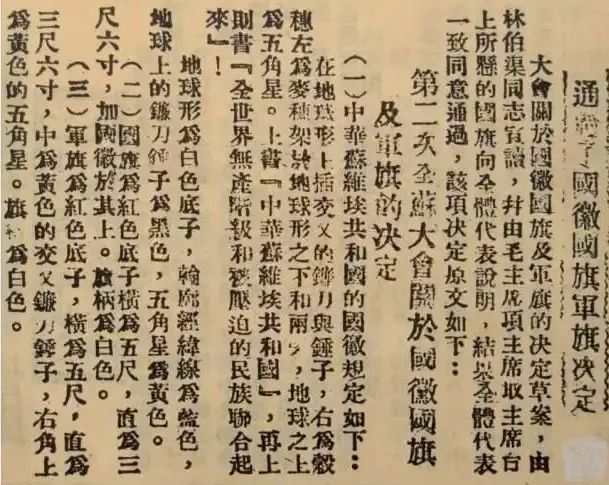 通過了國徽國旗軍旗决定
大會關於國徽國旗及軍旗的决定草案，由
林伯渠同志宣讀，幷由毛主席項主席取主席台
上所懸的國旗向全體代表說明，結果全體代表
一致同意通過，該項决定原文如下：
第二次全蘇大會關於國徽國旗
及軍旗的决定
（一）中華蘇維埃共和國的國徽規定如下：
在地球形上插交叉的鐮刀與錘子，右爲穀
穗左爲麥穗架於地球形之下和兩旁，地球之上
爲五角星。上書『中華蘇維埃共和國』，再上
則書『全世界無產階級和被壓迫的民族聯合起
來』！
地球形爲白色底子，輪廓經緯線爲藍色，
地球上的鐮刀錘子爲黑色，五角星爲黃色。
（二）國旗爲紅色底子橫爲五尺，直爲三
尺六寸，加國徽於其上。旗柄爲白色。
（三）軍旗爲紅色底子，橫爲五尺，直爲
三尺六寸，中爲黃色的交叉鐮刀錘子，右角上
爲黃色的五角星。旗柄爲白色。